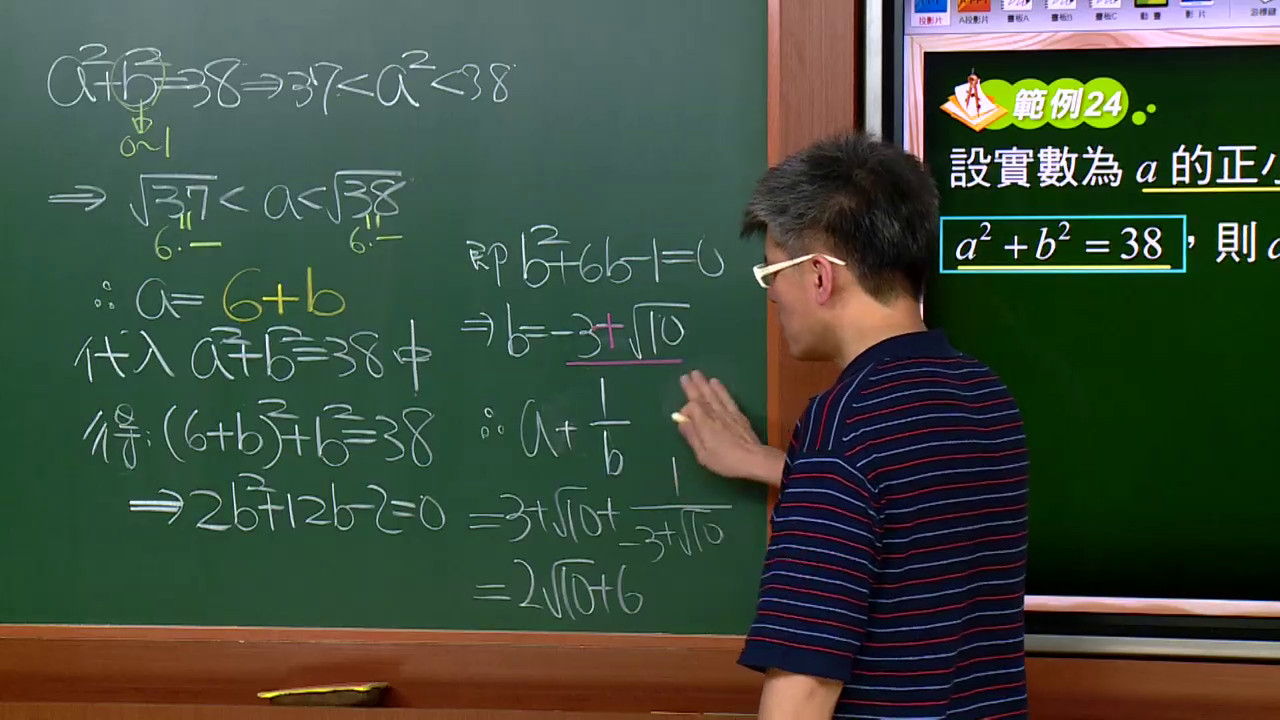 a²+b²=38⇒37<a²<38
0~1
⇒ √37 < a < √38
6.— 6.—
∴ a = 6+b
代入 a²+b²=38中
得:(6+b)²+b²=38
⇒2b²+12b-2=0
即 b²+6b-1=0
⇒b=-3+√10
∴ a+1/b
=3+√10+1/(-3+√10)
=2√10+6
投影片 A段影片 畫板A 畫板B 畫板C 動畫 影片
範例24
設實數為 a 的正小
a²+b²=38,則 a